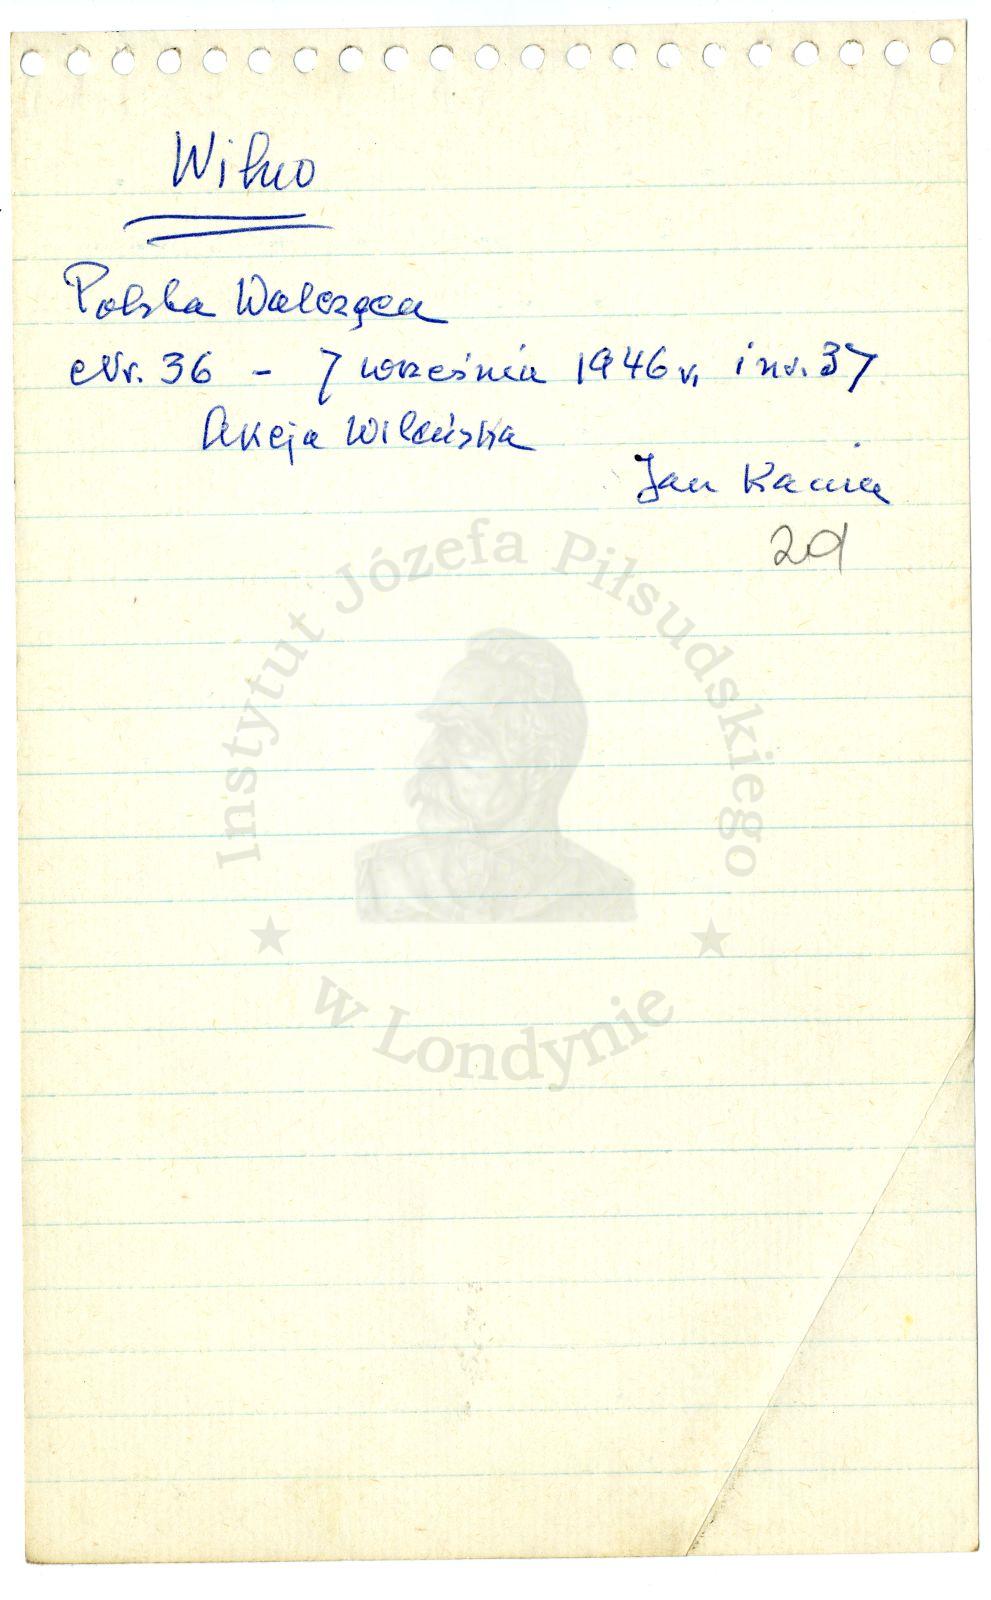 Wilno
Polska Walcząca
Nr. 36 - 7 września 1946 r. i nr. 37
Akcja Wileńska
Jan Kania
Instytut Józefa Piłsudskiego
w Londynie